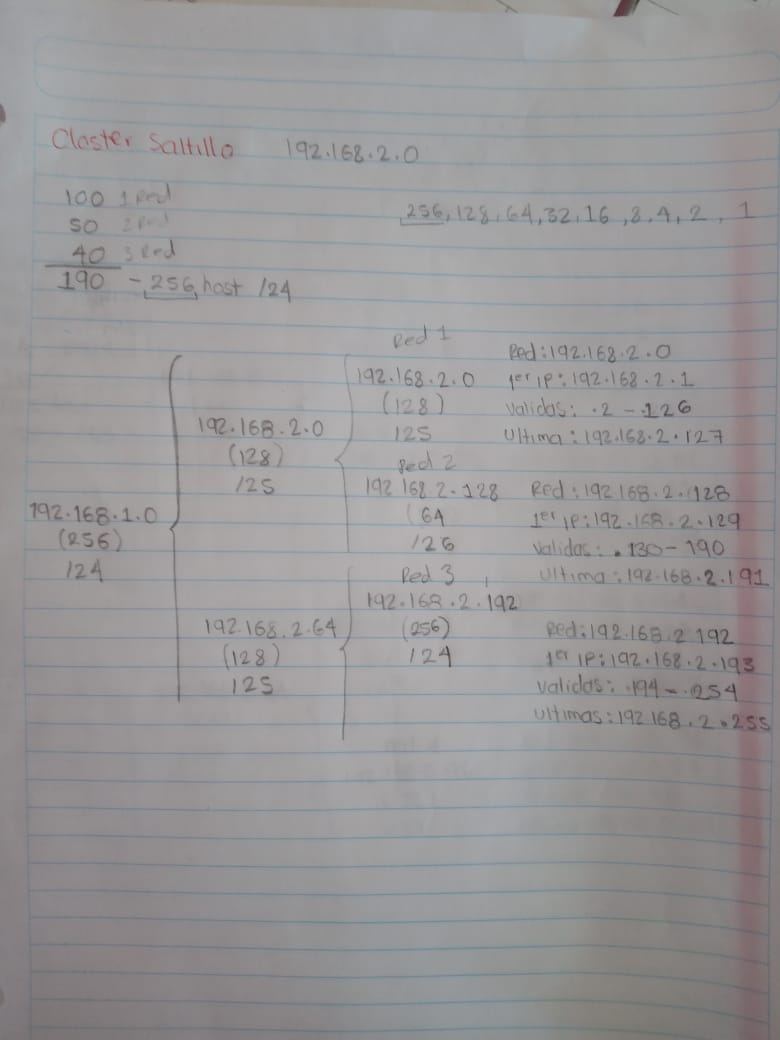 Claster Saltillo 192.168.2.0
100 1 Red
50 2 Red
40 3 Red
190 - 256 host /24
256, 128, 64, 32, 16, 8, 4, 2, 1
192.168.1.0
(256)
/24
192.168.2.0
(128)
/25
192.168.2.64
(128)
/25
Red 1
192.168.2.0
(128)
/25
Red: 192.168.2.0
1er ip: 192.168.2.1
validas: .2 - .126
Ultima: 192.168.2.127
Red 2
192.168.2.128
(64
/26
Red: 192.168.2.128
1er ip: 192.168.2.129
validas: .130 - 190
Ultima: 192.168.2.191
Red 3
192.168.2.192
(256)
/24
Red: 192.168.2 192
1er ip: 192.168.2.193
validas: .194 - .254
Ultimas: 192.168.2.255